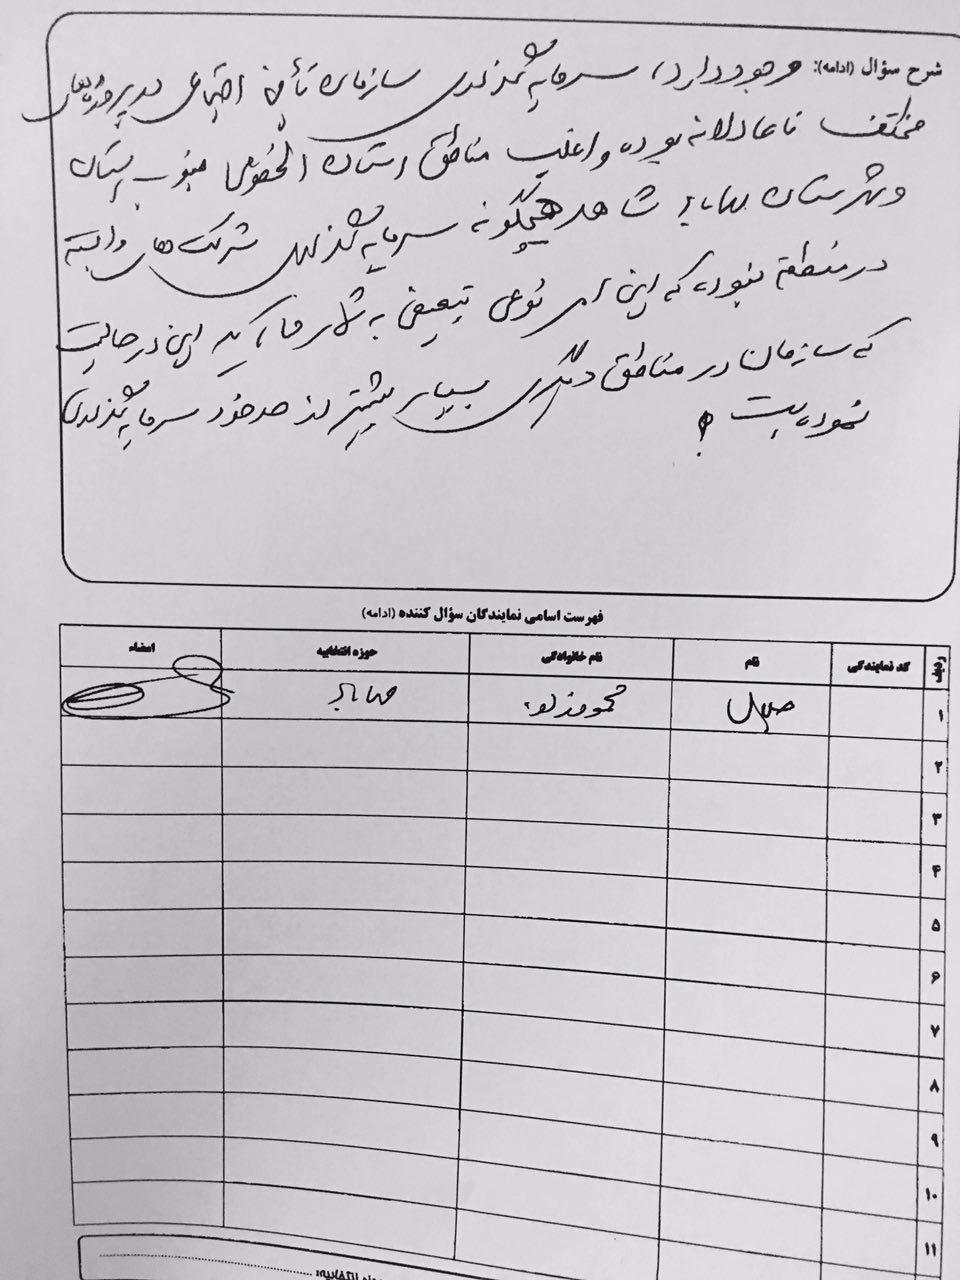 شرح سؤال (ادامه): وجود دارد، سرمایه گذاری سازمان تأمین اجتماعی در پروژه‌های
مختلف ناعادلانه بوده و اغلب مناطق استان الخصوص جنوب استان
و شهرستان مهاباد شاهد هیچگونه سرمایه گذاری شرکت های وابسته
در منطقه نبوده که این امر نوعی تبعیض به شمار می آید این در حالیست
که سازمان در مناطق دیگری بسیار بیشتر از حد خود سرمایه گذاری
نموده است ؟
فهرست اسامی نمایندگان سؤال کننده (ادامه)
ردیف کد نمایندگی نام نام خانوادگی حوزه انتخابیه امضاء
۱ جلال محمودزاده مهاباد
۲
۳
۴
۵
۶
۷
۸
۹
۱۰
۱۱
انتخابیه: